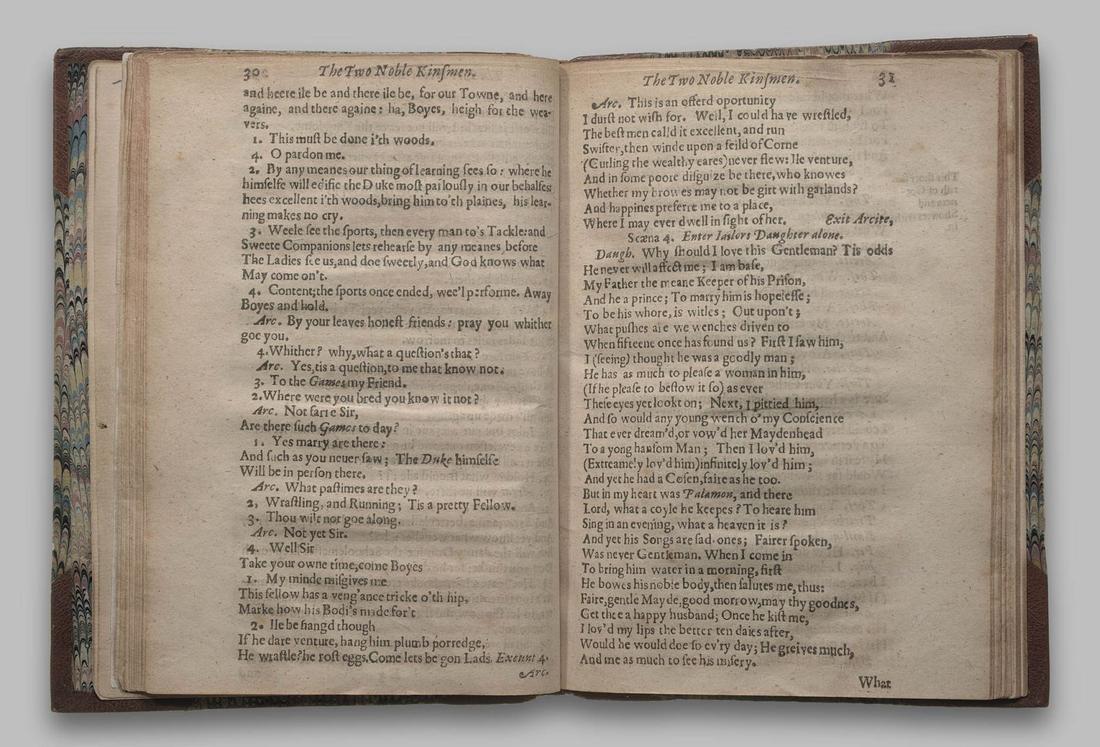 30
The Two Noble Kinſmen.
and heere ile be and there ile be, for our Towne, and here
againe, and there againe: ha, Boyes, heigh for the wea-
vers.
1. This muſt be done i'th woods.
4. O pardon me.
2. By any meanes our thing of learning ſees ſo: where he
himſelfe will edifie the Duke moſt parlouſly in our behalfes:
hees excellent i'th woods, bring him to'th plaines, his lear-
ning makes no cry.
3. Weele ſee the ſports, then every man to's Tackle: and
Sweete Companions lets rehearſe by any meanes before
The Ladies ſee us, and doe ſweetly, and God knows what
May come on't.
4. Content; the ſports once ended, wee'l performe. Away
Boyes and hold.
Arc. By your leaves honeſt friends: pray you whither
goe you.
4. Whither? why, what a queſtion's that?
Arc. Yes, tis a queſtion, to me that know not.
3. To the Games my Friend.
2. Where were you bred you know it not?
Arc. Not farre Sir,
Are there ſuch Games to day?
1. Yes marry are there:
And ſuch as you never ſaw; The Duke himſelfe
Will be in perſon there.
Arc. What paſtimes are they?
2, Wraſtling, and Running; Tis a pretty Fellow.
3. Thou wilt not goe along.
Arc. Not yet Sir.
4. Well Sir
Take your owne time, come Boyes
1. My minde miſgives me
This fellow has a veng'ance tricke o'th hip,
Marke how his Bodi's made for't
2. Ile be hangd though
If he dare venture, hang him plumb porredge,
He wraſtle? he roſt eggs. Come lets be gon Lads. Exeunt 4.
Arc.
The Two Noble Kinſmen.
31
Arc. This is an offerd oportunity
I durſt not wiſh for. Well, I could have wreſtled,
The beſt men calld it excellent, and run
Swifter, then winde upon a feild of Corne
(Curling the wealthy eares) never flew: Ile venture,
And in ſome poore diſguize be there, who knowes
Whether my browes may not be girt with garlands?
And happines preferre me to a place,
Where I may ever dwell in ſight of her. Exit Arcite,
Scæna 4. Enter Iailors Daughter alone.
Daugh. Why ſhould I love this Gentleman? Tis odds
He never will affect me; I am baſe,
My Father the meane Keeper of his Priſon,
And he a prince; To marry him is hopeleſſe;
To be his whore, is witles; Out upon't;
What puſhes are we wenches driven to
When fifteene once has found us? Firſt I ſaw him,
I (ſeeing) thought he was a goodly man;
He has as much to pleaſe a woman in him,
(If he pleaſe to beſtow it ſo) as ever
Theſe eyes yet lookt on; Next, I pittied him,
And ſo would any young wench o'my Conſcience
That ever dream'd, or vow'd her Maydenhead
To a yong hanſom Man; Then I lov'd him,
(Extreamely lov'd him) infinitely lov'd him;
And yet he had a Coſen, faire as he too.
But in my heart was Palamon, and there
Lord, what a coyle he keepes? To heare him
Sing in an evening, what a heaven it is?
And yet his Songs are ſad-ones; Fairer ſpoken,
Was never Gentleman. When I come in
To bring him water in a morning, firſt
He bowes his noble body, then ſalutes me, thus:
Faire, gentle Mayde, good morrow, may thy goodnes,
Get thee a happy husband; Once he kiſt me,
I lov'd my lips the better ten daies after,
Would he would doe ſo ev'ry day; He greives much,
And me as much to ſee his miſery.
What